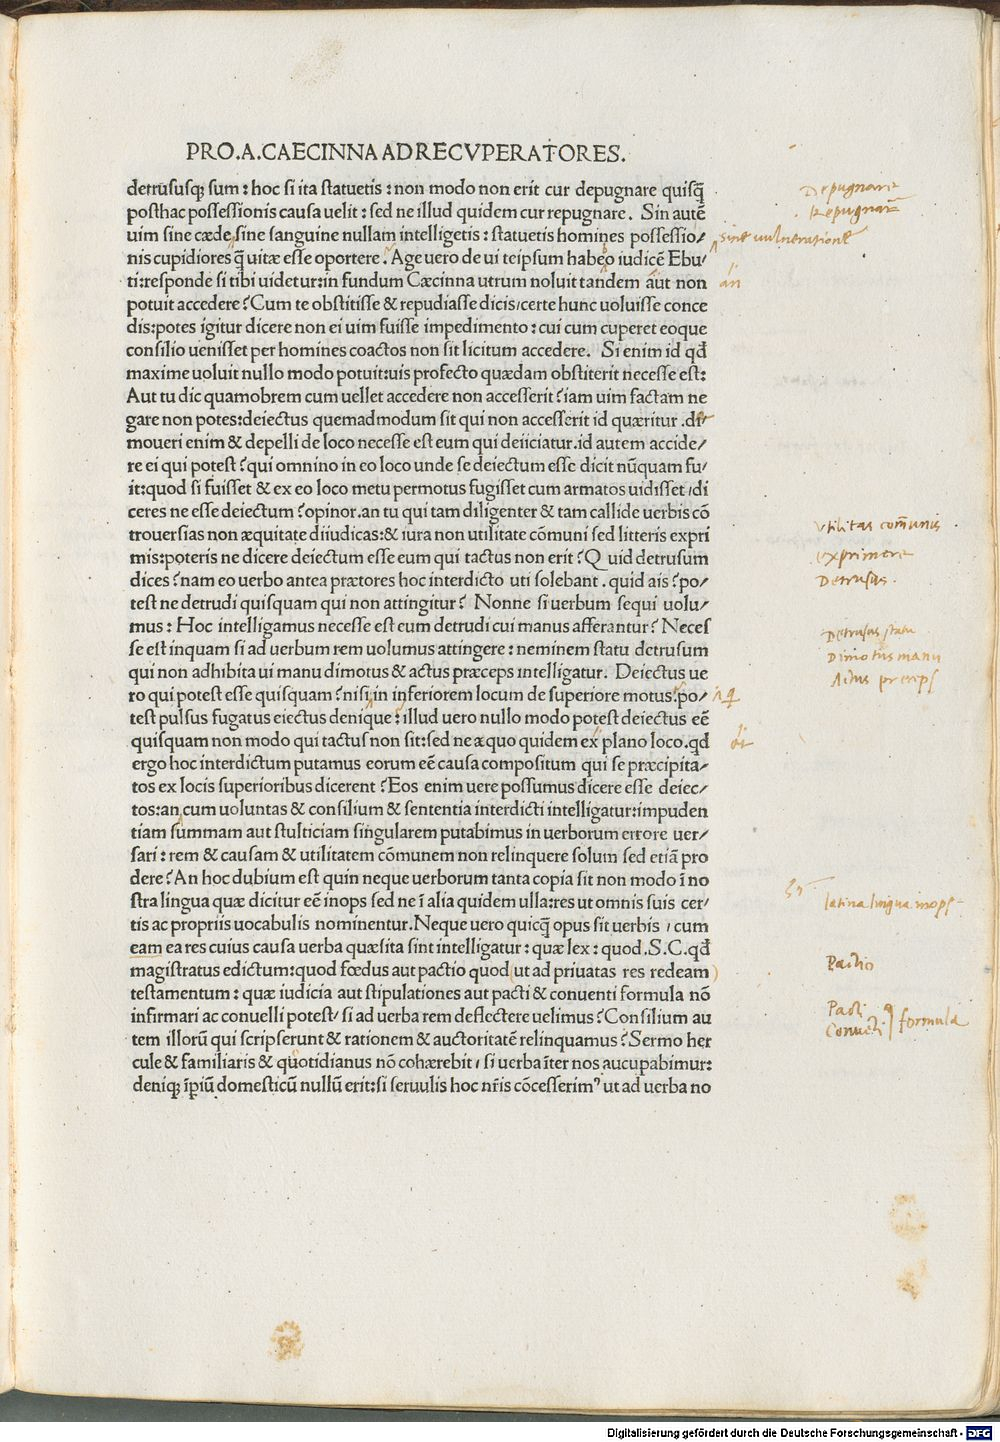 PRO.A.CAECINNA AD RECVPERATORES.
detrususq̃ sum : hoc si ita statuetis : non modo non erit cur depugnare quisq̃
posthac possessionis causa uelit : sed ne illud quidem cur repugnare. Sin autẽ
uim sine cæde sine sanguine nullam intelligetis : statuetis homines possessio/
nis cupidiores q̃ uitæ esse oportere. Age uero de ui teipsum habeo iudicẽ Ebu/
ti:responde si tibi uidetur:in fundum Cæcinna utrum noluit tandem aut non
potuit accedere? Cum te obstitisse & repudiasse dicis/certe hunc uoluisse conce
dis:potes igitur dicere non ei uim fuisse impedimento : cui cum cuperet eoque
consilio uenisset per homines coactos non sit licitum accedere. Si enim id qđ
maxime uoluit nullo modo potuit:uis profecto quædam obstiterit necesse est:
Aut tu dic quamobrem cum uellet accedere non accesserit? iam uim factam ne
gare non potes:deiectus quemadmodum sit qui non accesserit id quæritur . di
moueri enim & depelli de loco necesse est eum qui deiiciatur.id autem accide/
re ei qui potest? qui omnino in eo loco unde se deiectum esse dicit nũquam fu/
it:quod si fuisset & ex eo loco metu permotus fugisset cum armatos uidisset /di
ceres ne esse deiectum? opinor.an tu qui tam diligenter & tam callide uerbis cõ
trouersias non æquitate diiudicas:& iura non utilitate cõmuni sed litteris expri
mis:poteris ne dicere deiectum esse eum qui tactus non erit? Quid detrusum
dices? nam eo uerbo antea prætores hoc interdicto uti solebant . quid ais? po/
test ne detrudi quisquam qui non attingitur? Nonne si uerbum sequi uolu/
mus : Hoc intelligamus necesse est eum detrudi cui manus afferantur? Neces
se est inquam si ad uerbum rem uolumus attingere : neminem statu detrusum
qui non adhibita ui manu dimotus & actus præceps intelligatur. Deiectus ue
ro qui potest esse quisquam? nisi in inferiorem locum de superiore motus?po/
test pulsus fugatus eiectus denique : illud uero nullo modo potest deiectus eẽ
quisquam non modo qui tactus non sit:sed ne æquo quidem ex plano loco.qđ
ergo hoc interdictum putamus eorum eẽ causa compositum qui se præcipita/
tos ex locis superioribus dicerent? Eos enim uere possumus dicere esse deiec/
tos:an cum uoluntas & consilium & sententia interdicti intelligatur:impuden
tiam summam aut stulticiam singularem putabimus in uerborum errore uer/
sari : rem & causam & utilitatem cõmunem non relinquere solum sed etiã pro
dere? An hoc dubium est quin neque uerborum tanta copia sit non modo ĩ no
stra lingua quæ dicitur eẽ inops sed ne ĩ alia quidem ulla:res ut omnis suis cer/
tis ac propriis uocabulis nominentur. Neque uero quicq̃ opus sit uerbis / cum
eam ea res cuius causa uerba quæsita sint intelligatur : quæ lex : quod.S.C.qđ
magistratus edictum:quod fœdus aut pactio quod (ut ad priuatas res redeam)
testamentum : quæ iudicia aut stipulationes aut pacti & conuenti formula nõ
infirmari ac conuelli potest/ si ad uerba rem deflectere uelimus? Consilium au
tem illorũ qui scripserunt & rationem & auctoritatẽ relinquamus? Sermo her
cule & familiaris & quotidianus nõ cohærebit / si uerba ĩter nos aucupabimur:
deniq̃ ĩpiũ domesticũ nullũ erit:si seruulis hoc nr̃is cõcesserim⁹ ut ad uerba no
Depugnare
Repugnar̃
sine uulneratione
an
Vtilitas com̃unis
exprimere
Detrusus.
Detrusus statu
Dimotus manu
Actus preceps
latina lingua inops
Pactio
Pacti
Conuẽti
formula
Digitalisierung gefördert durch die Deutsche Forschungsgemeinschaft - DFG